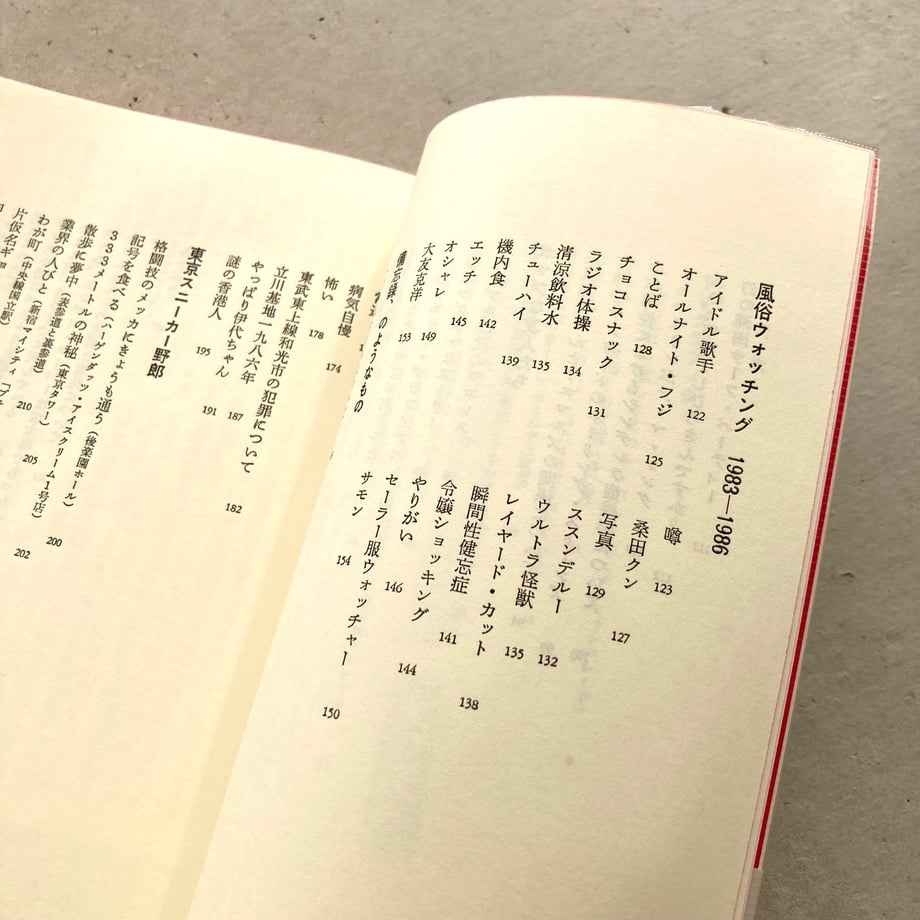 風俗ウォッチング 1983—1986
アイドル歌手 122
噂 123
オールナイト・フジ 125
桑田クン 127
ことば 128
写真 129
チョコスナック 131
ススンデルー 132
ラジオ体操 134
ウルトラ怪獣 135
清涼飲料水 135
レイヤード・カット 138
チューハイ 139
瞬間性健忘症 141
機内食 142
令嬢ショッキング 144
エッチ 145
やりがい 146
オシャレ 149
セーラー服ウォッチャー 150
大友克洋 153
サモン 154
備忘録、のようなもの
病気自慢 174
怖い 178
東武東上線和光市の犯罪について 182
立川基地一九八六年 187
やっぱり伊代ちゃん 191
謎の香港人 195
東京スニーカー野郎
格闘技のメッカにきょうも通う(後楽園ホール) 200
記号を食べる(ハーゲンダッツ・アイスクリーム1号店) 202
333メートルの神秘(東京タワー) 205
散歩に夢中(表参道と裏参道) 210
業界の人びと(新宿マイシティ「プチ
わが町(中央線国立駅)
片仮名ギョ